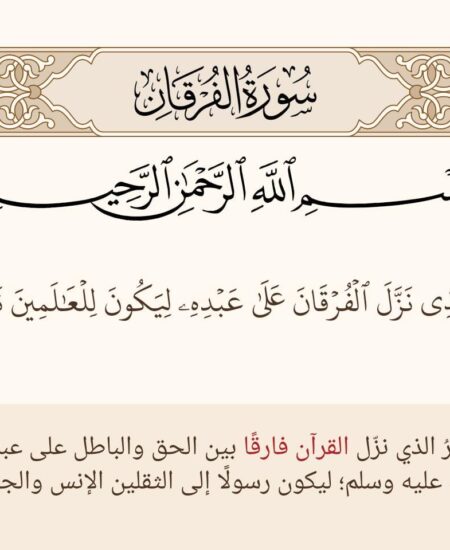 سُورَةُ الفُرۡقَانِ
ٱللَّهِ ٱلرَّحۡمَٰنِ ٱلرَّحِيمِ
نَزَّلَ ٱلۡفُرۡقَانَ عَلَىٰ عَبۡدِهِۦ لِيَكُونَ لِلۡعَٰلَمِينَ
الذي نزّل القرآن فارقًا بين الحق والباطل على
عليه وسلم؛ ليكون رسولًا إلى الثقلين الإنس